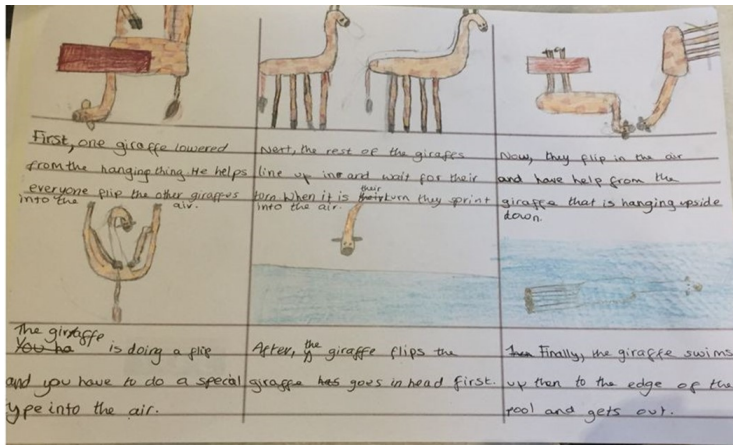 First, one giraffe lowered
from the hanging thing. He helps
everyone flip the other giraffes
into the air.
Next, the rest of the giraffs
line up and wait for their
torn. When it is their turn they sprint
into the air.
Now, they flip in the air
and have help from the
giraffe that is hanging upside
down.
The giraffe
is doing a flip
and you have to do a special
ype into the air.
After, the giraffe flips the
giraffe goes in head first.
Finally, the giraffe swims
up then to the edge of the
pool and gets out.